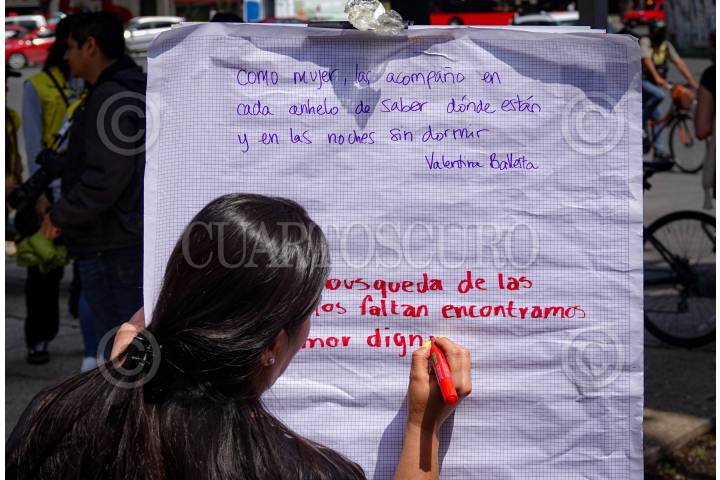 Como mujer, las acompaño en
cada anhelo de saber dónde están
y en las noches sin dormir
Valentina Ballesta
CUARTOSCURO
búsqueda de las
faltan encontramos